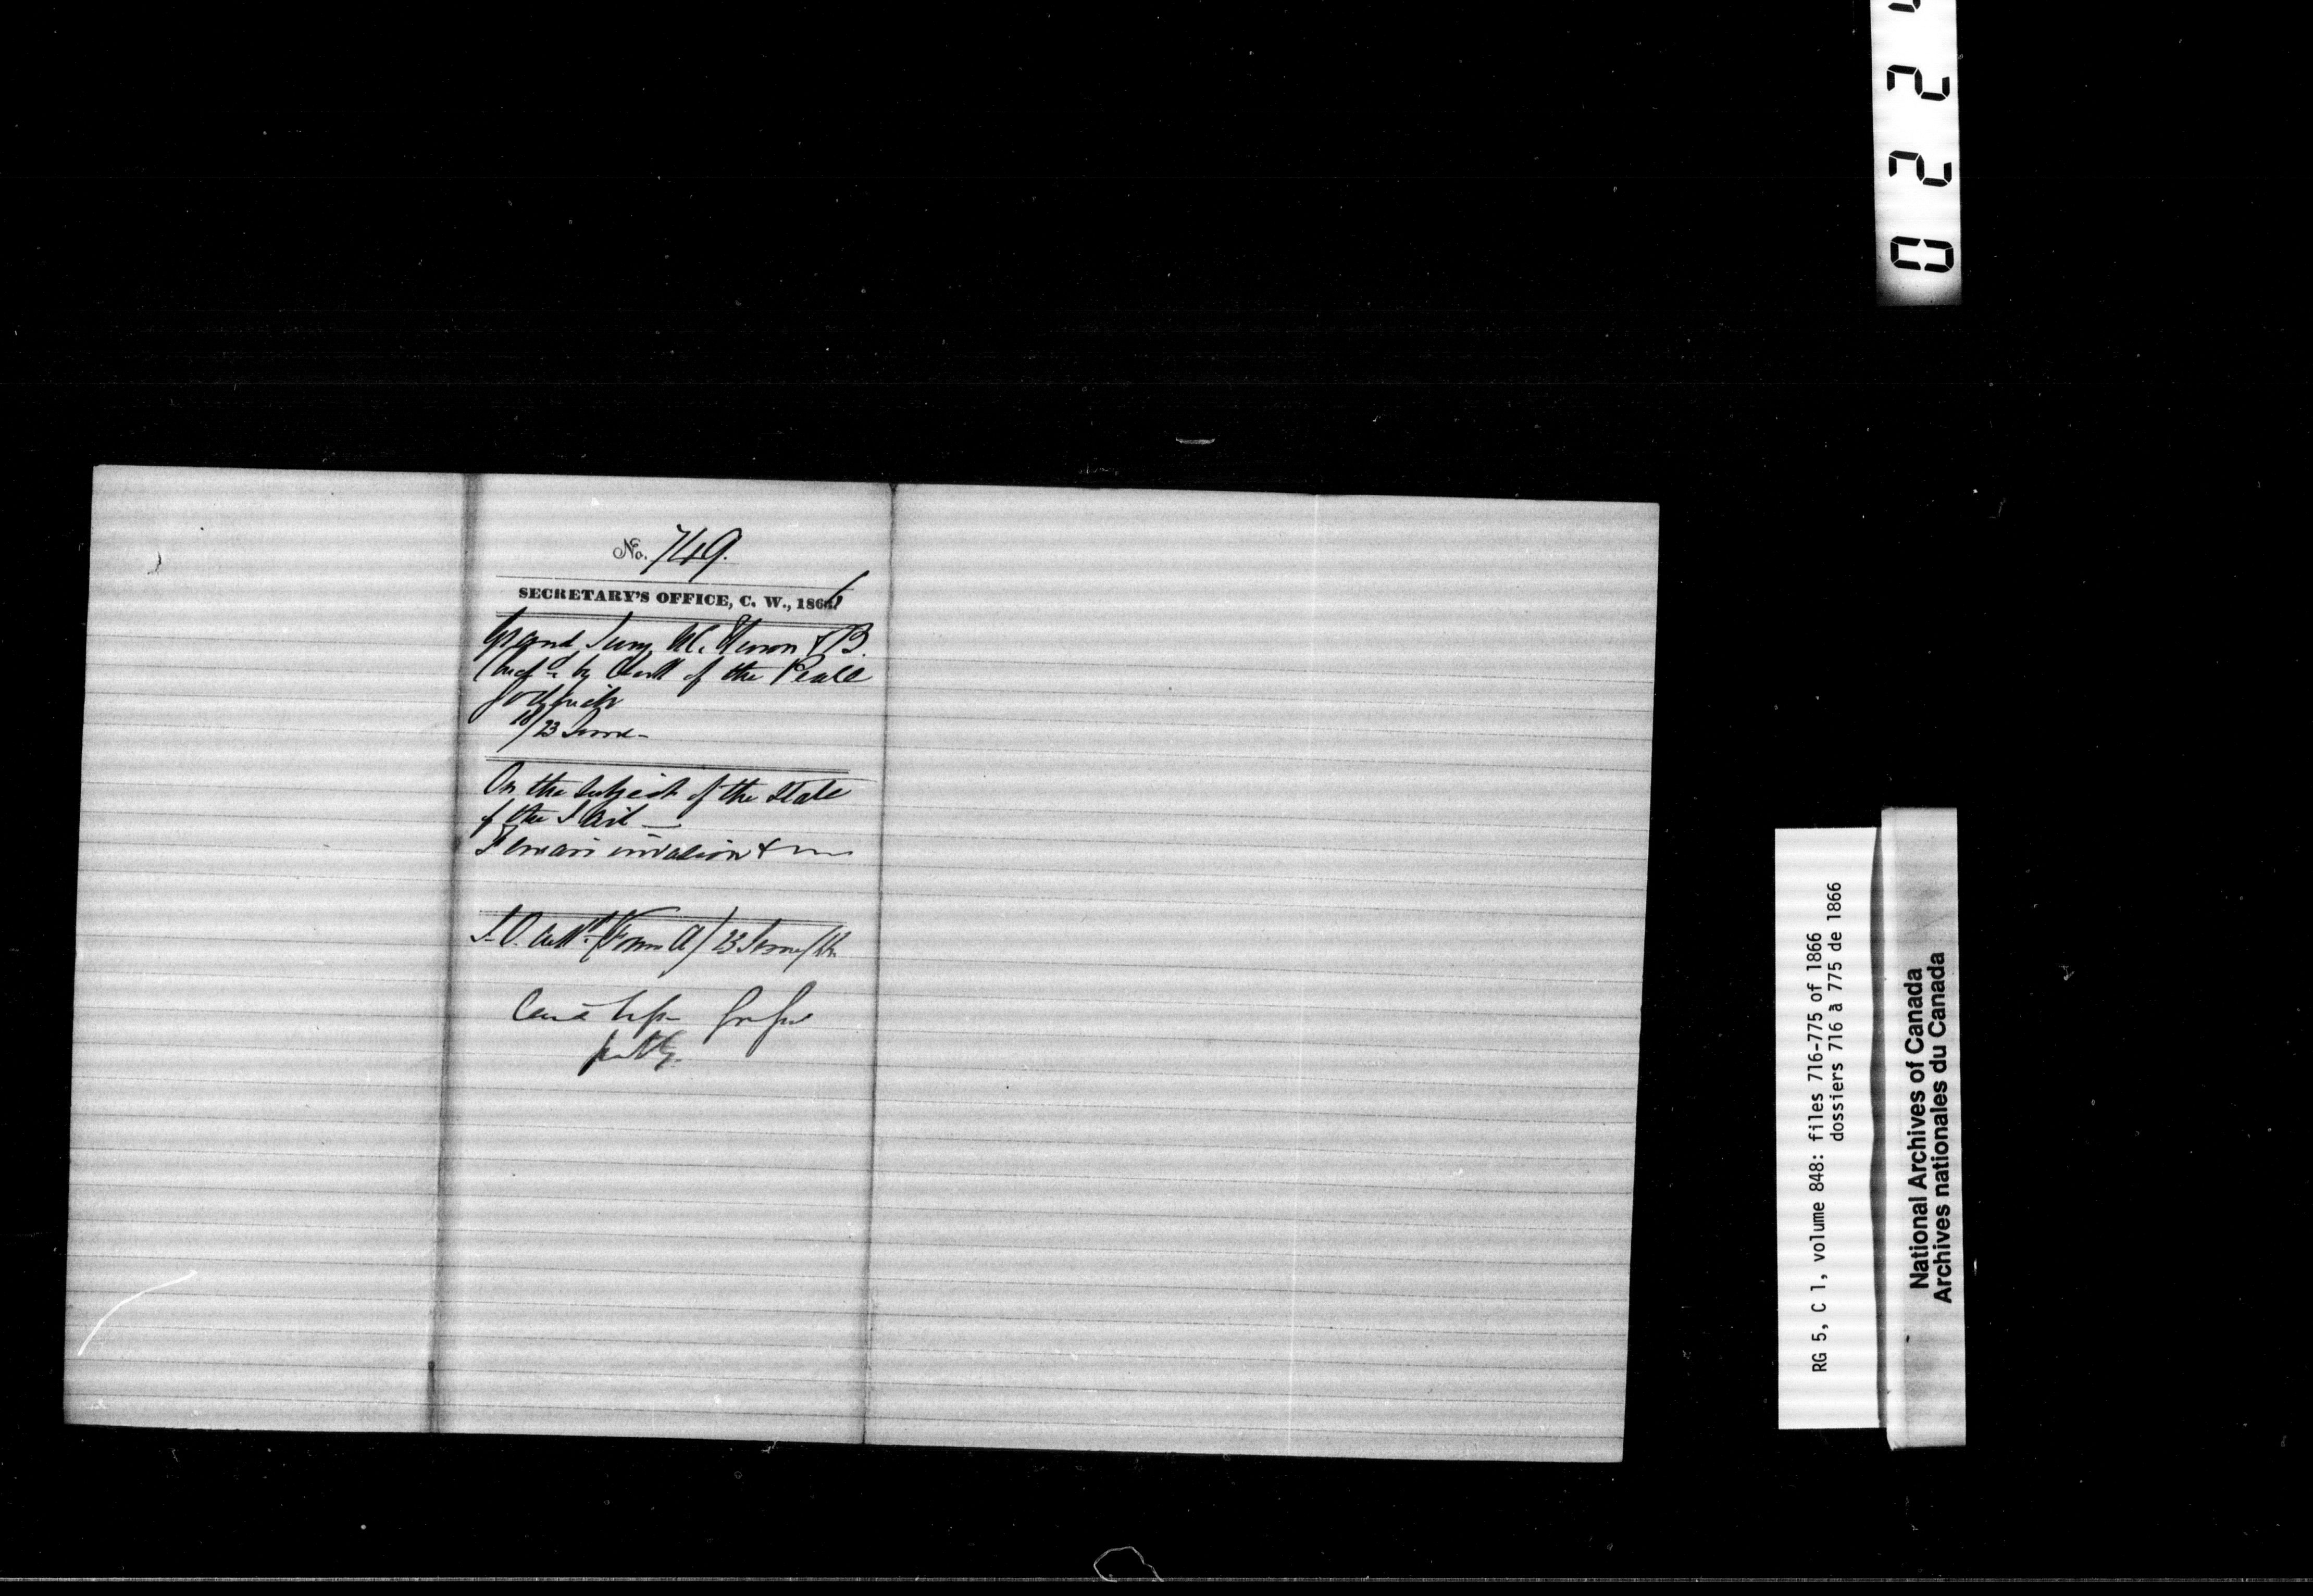 No. 749.
SECRETARY'S OFFICE, C. W., 1866
Grand Jury U.C. Huron & B.
by Clerk of the Peace
Goderich
18/23 June
On the subject of the State
of the Jail —
Fenian invasion &
(Form A) 23 June/66
022
RG 5, C 1, volume 848: files 716-775 of 1866
dossiers 716 à 775 de 1866
National Archives of Canada
Archives nationales du Canada